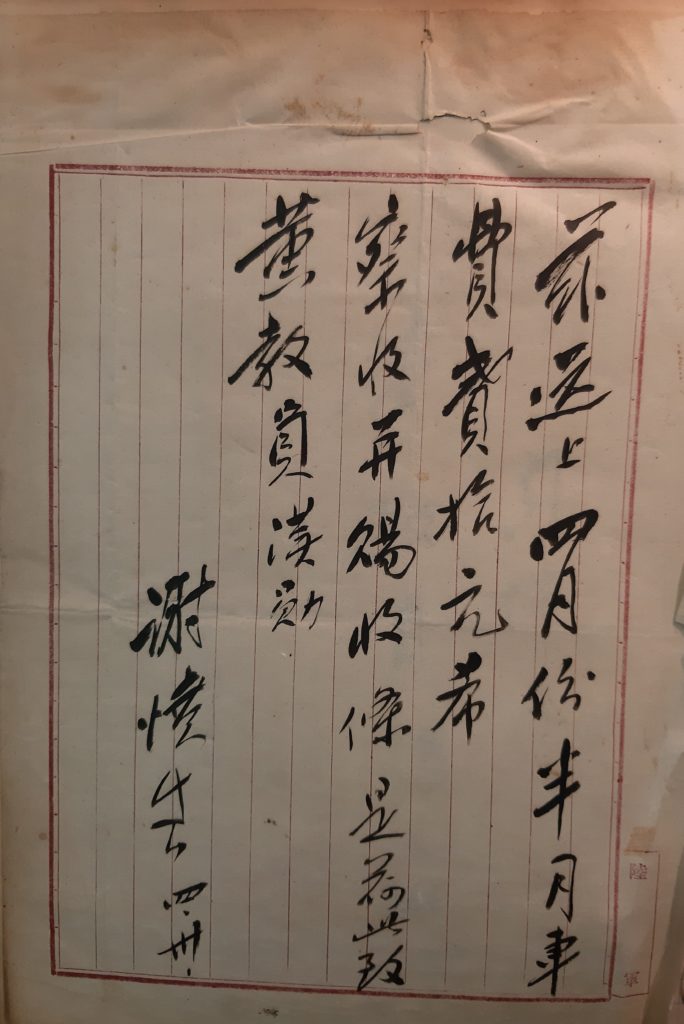 茲送上四月份半月車
費貳拾元希
察收并賜收條是荷此致
黃教員漢勛
謝 四.卅.
陸
軍